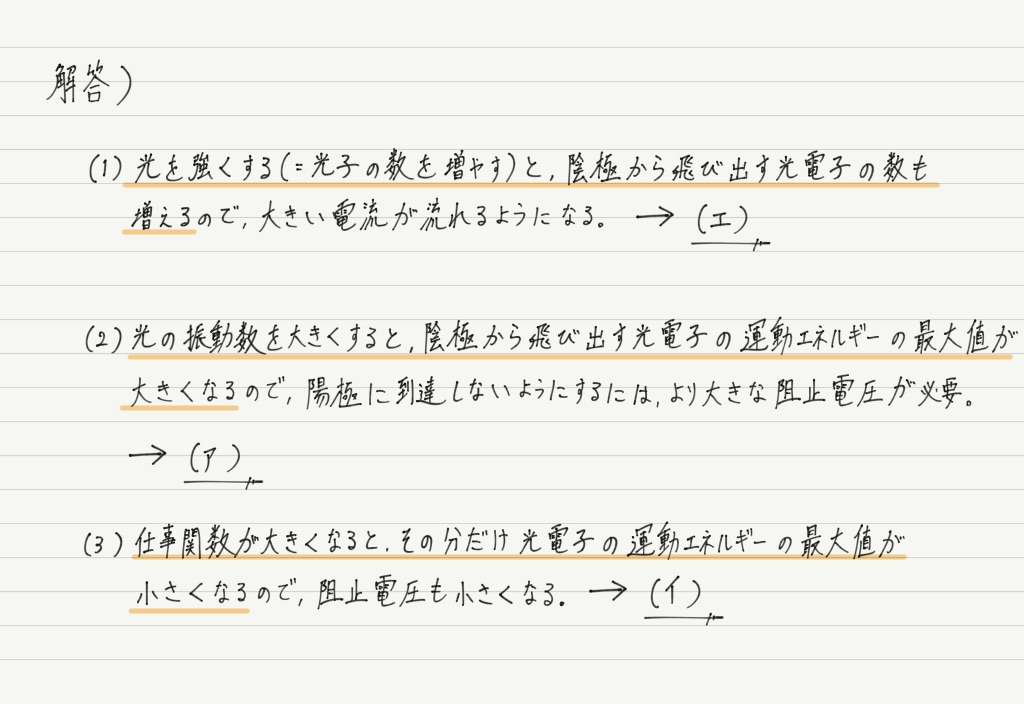 解答)
(1) 光を強くする(=光子の数を増やす)と,陰極から飛び出す光電子の数も
増えるので,大きい電流が流れるようになる。 → (エ)
(2) 光の振動数を大きくすると,陰極から飛び出す光電子の運動エネルギーの最大値が
大きくなるので,陽極に到達しないようにするには,より大きな阻止電圧が必要。
→ (ア)
(3) 仕事関数が大きくなると,その分だけ光電子の運動エネルギーの最大値が
小さくなるので,阻止電圧も小さくなる。 → (イ)